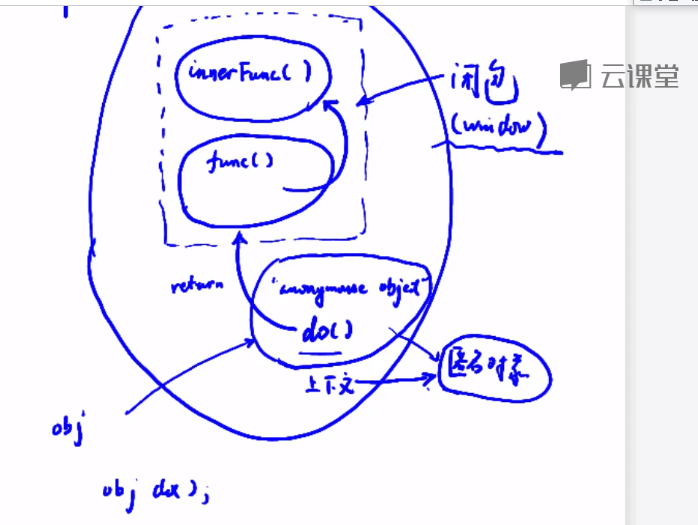 innerFunc()
云课堂
闭包
(window)
func()
return
"anonymouse object"
do()
匿名对象
上下文
obj
obj do();